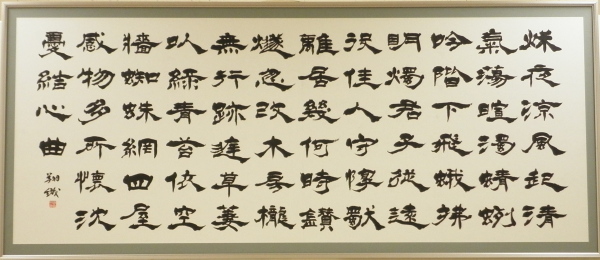 秋夜涼風起清
氣蕩暄濁蜻蛚
吟階下飛蛾拂
明燭君子從遠
役佳人守惸獨
離居幾何時鑽
燧忽改木房櫳
無行跡庭草萋
以綠青苔依空
牆蜘蛛網四屋
感物多所懷沈
憂結心曲